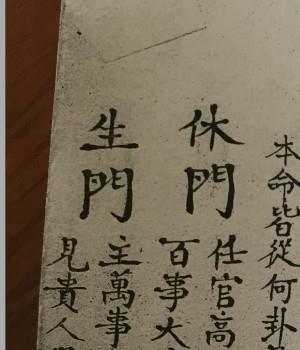 本命皆從何卦
休門
任官高
百事大
生門
主萬事
見貴人